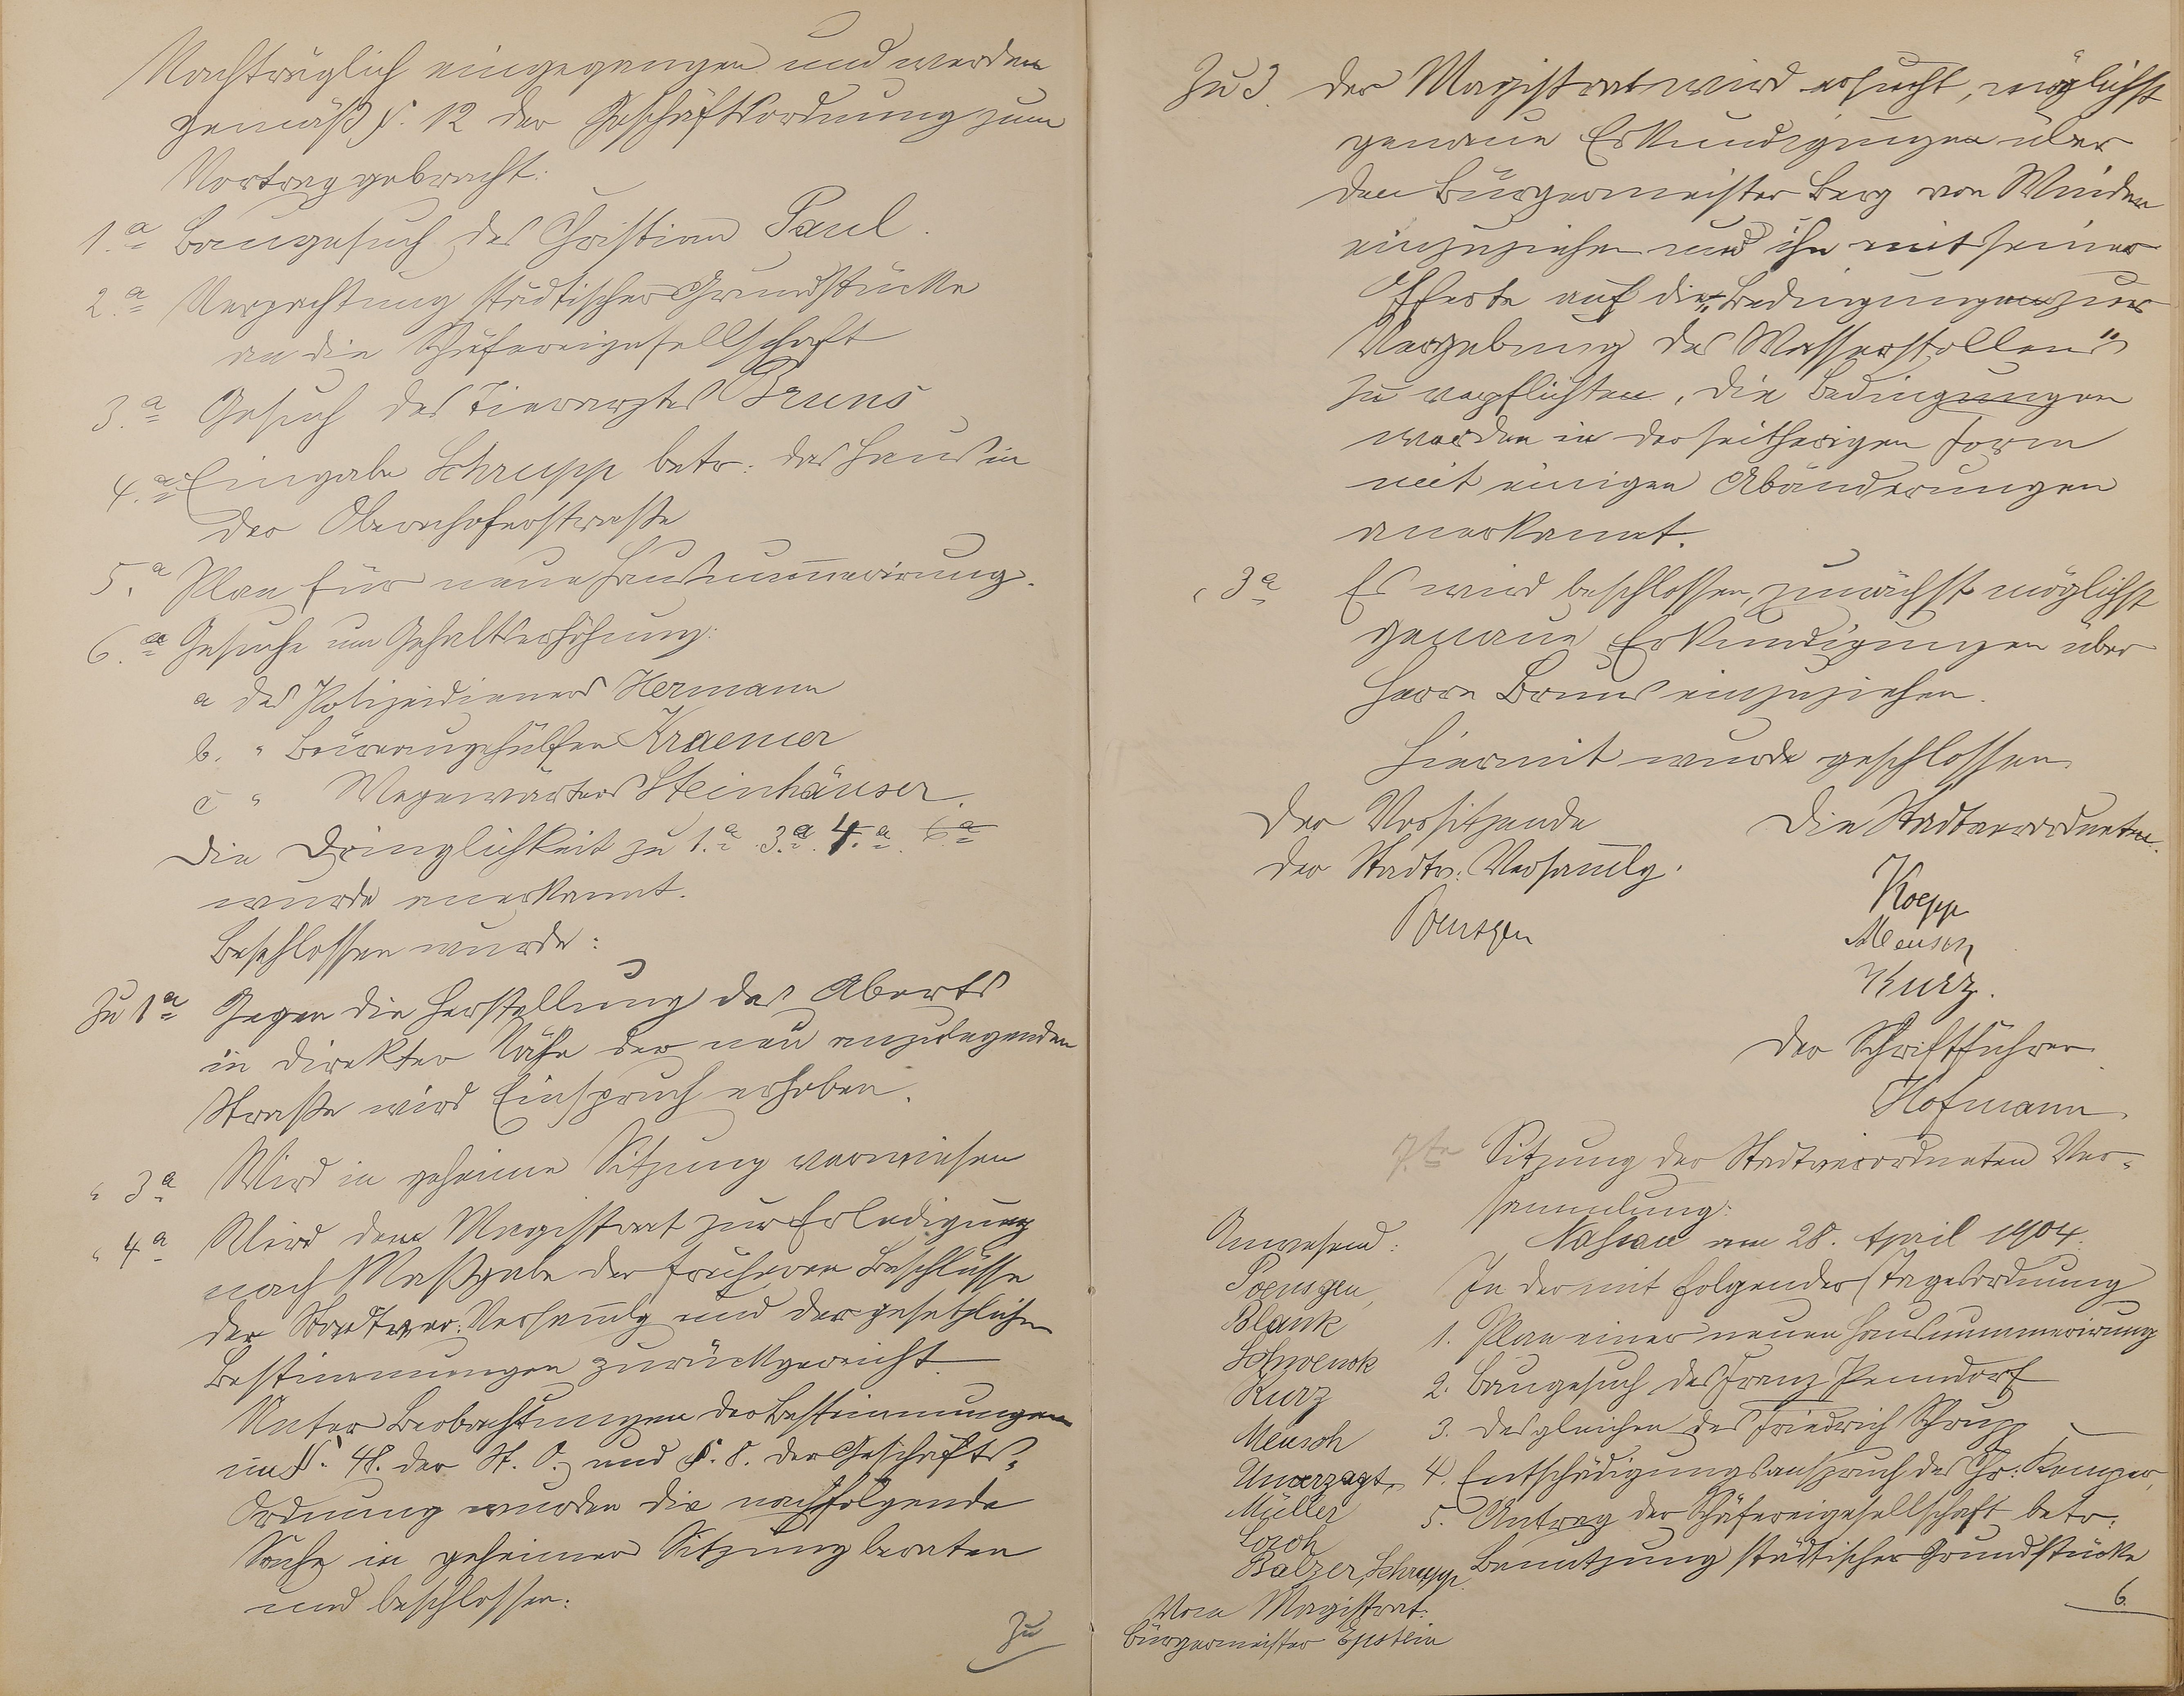 Nachträglich eingegangen und werden
gemäß §. 12 der Geschäftsordnung zum
Vortrag gebracht:
1.a Baugesuch des Christian Paul.
2.a Verpachtung städtischer Grundstücke
an die Schäfereigesellschaft
3.a Gesuch des Tierarztes Bruns
4.a Eingabe Schrupp betr. das Haus in
der Obernhoferstraße
5.a Plan für neue Hausnummerirung.
6.a Gesuche um Gehaltserhöhung:
a des Polizeidieners Hermann
b. " Büreaugehülfen Kraemer
c " Wegewärters Steinhäuser.
Die Dringlichkeit zu 1.a 3.a 4.a 6.a
wurde anerkannt.
Beschlossen wurde:
Zu 1a Gegen die Herstellung des Aborts
in direkter Nähe der neu anzulegenden
Straße wird Einspruch erhoben.
" 3a Wird in geheime Sitzung verwiesen
" 4a Wird dem Magistrat zur Erledigung
nach Maßgabe der früheren Beschlüsse
der Stadtver. Versamlg und der gesetzlichen
Bestimmungen zurückgereicht.
Unter Beobachtungen der Bestimmungen
im §. 48. der St. O. und §. 8. der Geschäfts-
Ordnung wurden die nachfolgende
Sache in geheimer Sitzung beraten
und beschlossen:
Zu
Zu 3. Der Magistrat wird ersucht, möglichst
genaue Erkundigungen über
den Bürgermeister Berg von Winden
einzuziehen und ihn mit seiner
Offerte auf die "Bedingungen zur
Vergebung des Wasserstollens"
zu verpflichten, die Bedingungen
werden in der seitherigen Form
mit einigen Abänderungen
anerkannt.
" 3a Es wird beschlossen, zunächst möglichst
genaue Erkundigungen über
Herrn Bruns einzuziehen.
Hiermit wurde geschlossen
Der Vorsitzende Die Stadtverordneten.
der Stadtv. Versamlg.
Poensgen
Koepp
Meusch
Kurz.
Der Schriftführer
Hofmann
7.te Sitzung der Stadtverordneten Ver-
sammlung:
Nassau am 28. April 1904.
Anwesend:
Poensgen,
Blank
Schwenk
Kurz
Meusch
Unverzagt,
Müller
Lorch
Balzer, Schrupp.
Vom Magistrat:
Bürgermeister Epstein
In der mit folgender Tagesordnung
1. Plan einer neuen Hausnummerirung
2. Baugesuch des Franz Penndorf
3. desgleichen des Friedrich Schrupp
4. Entschädigungsanspruch des Chr.
5. Antrag der Schäfereigesellschaft betr.
Benutzung städtischer Grundstücke
6.